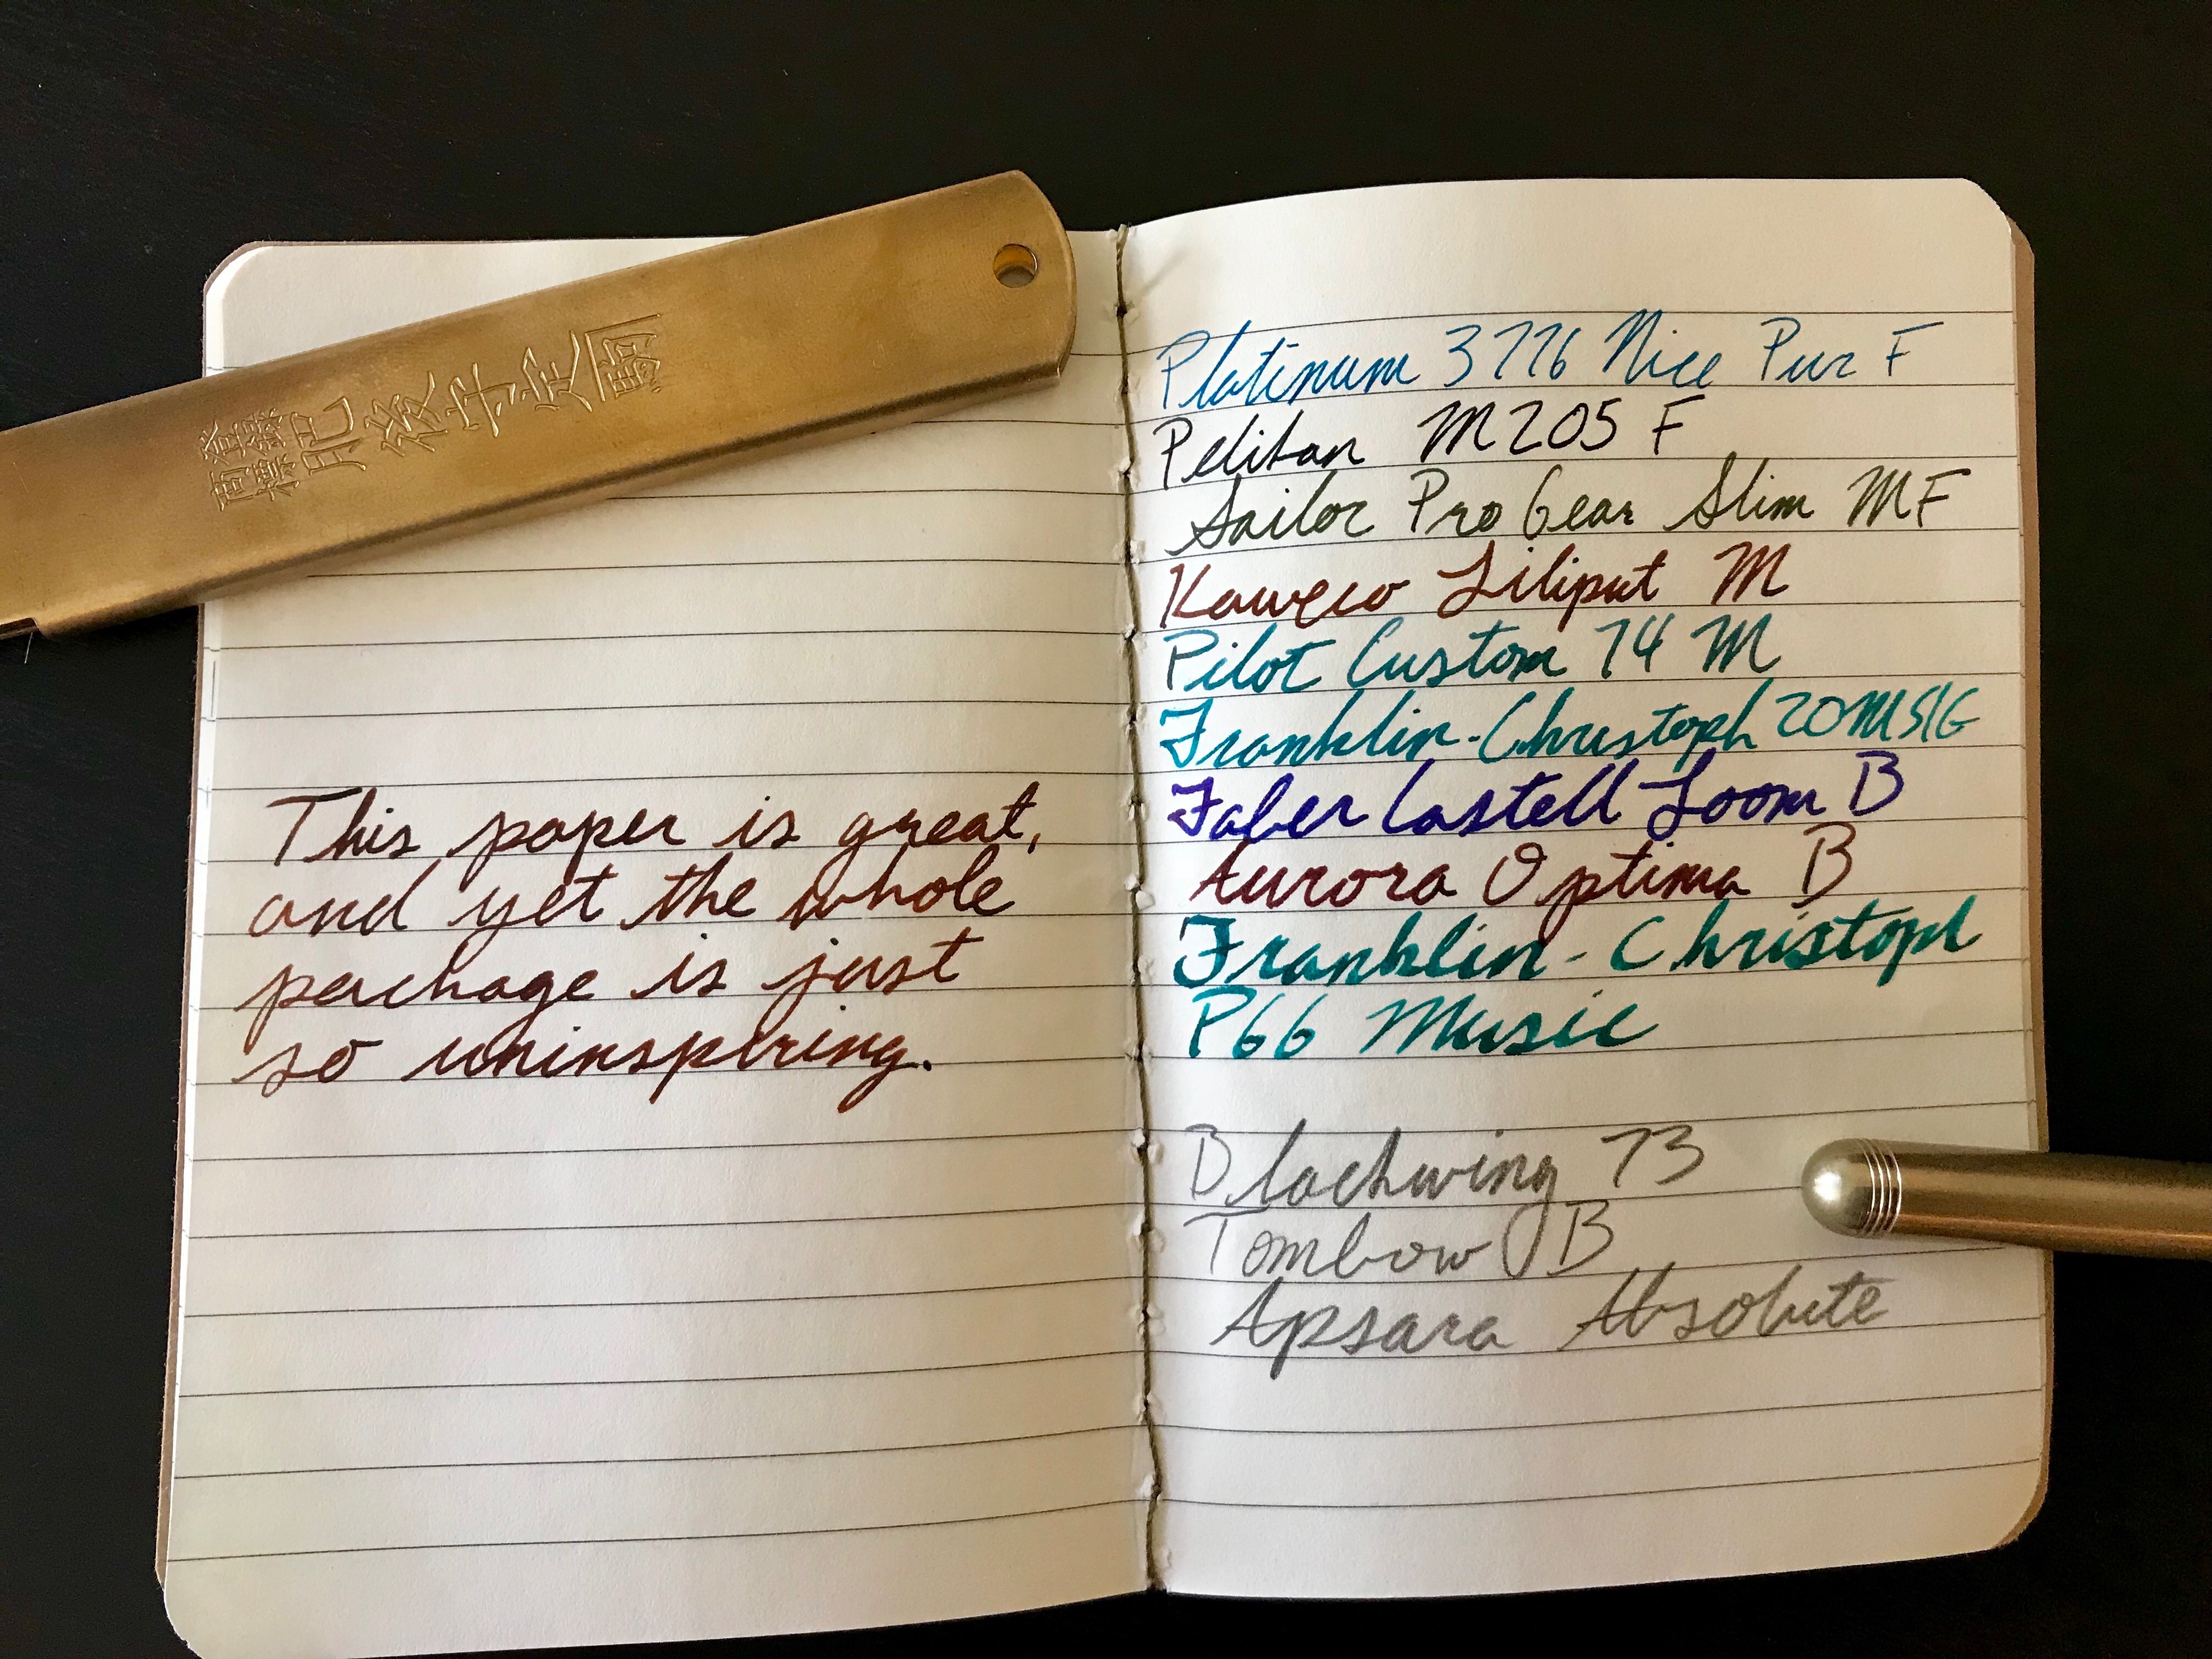 This paper is great,
and yet the whole
package is just
so uninspiring.
Platinum 3776 Nice Pur F
Pelikan M205 F
Sailor Pro Gear Slim MF
Kaweco Liliput M
Pilot Custom 74 M
Franklin-Christoph 20 M SIG
Faber Castell Loom B
Aurora Optima B
Franklin-Christoph
P66 Music
Blackwing 73
Tombow B
Apsara Absolute